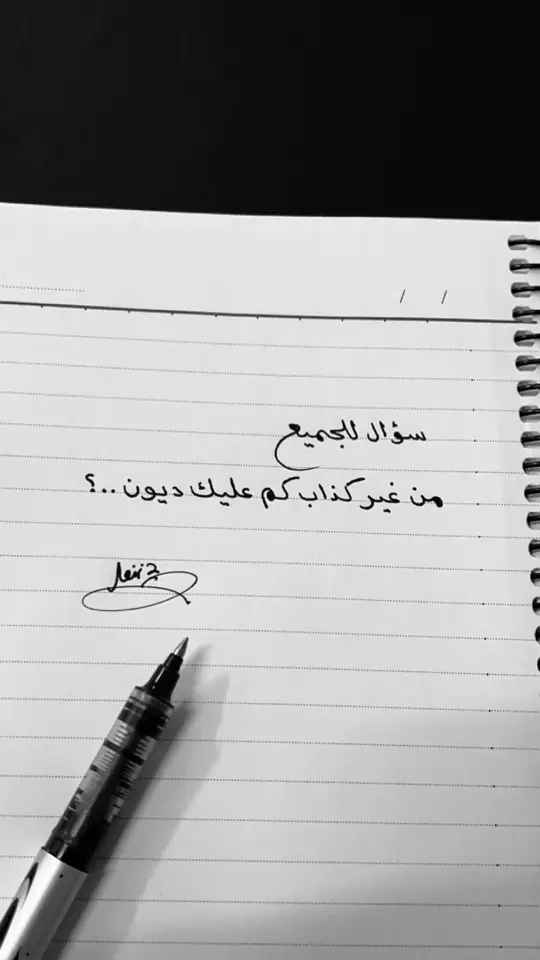 سؤال للجميع
من غير كذاب كم عليك ديون ..؟